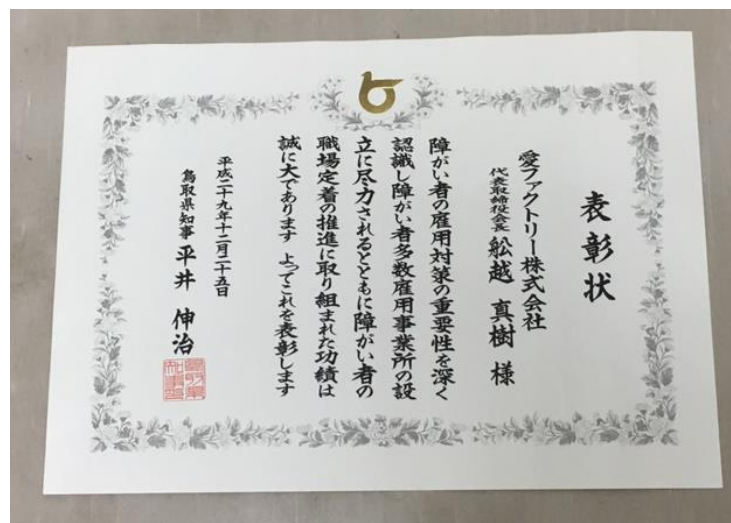 表彰状
愛ファクトリー株式会社
代表取締役会長 舩越 真樹 様
障がい者の雇用対策の重要性を深く
認識し障がい者多数雇用事業所の設
立に尽力されるとともに障がい者の
職場定着の推進に取り組まれた功績は
誠に大であります よってこれを表彰します
平成二十九年十二月二十五日
鳥取県知事 平井 伸治